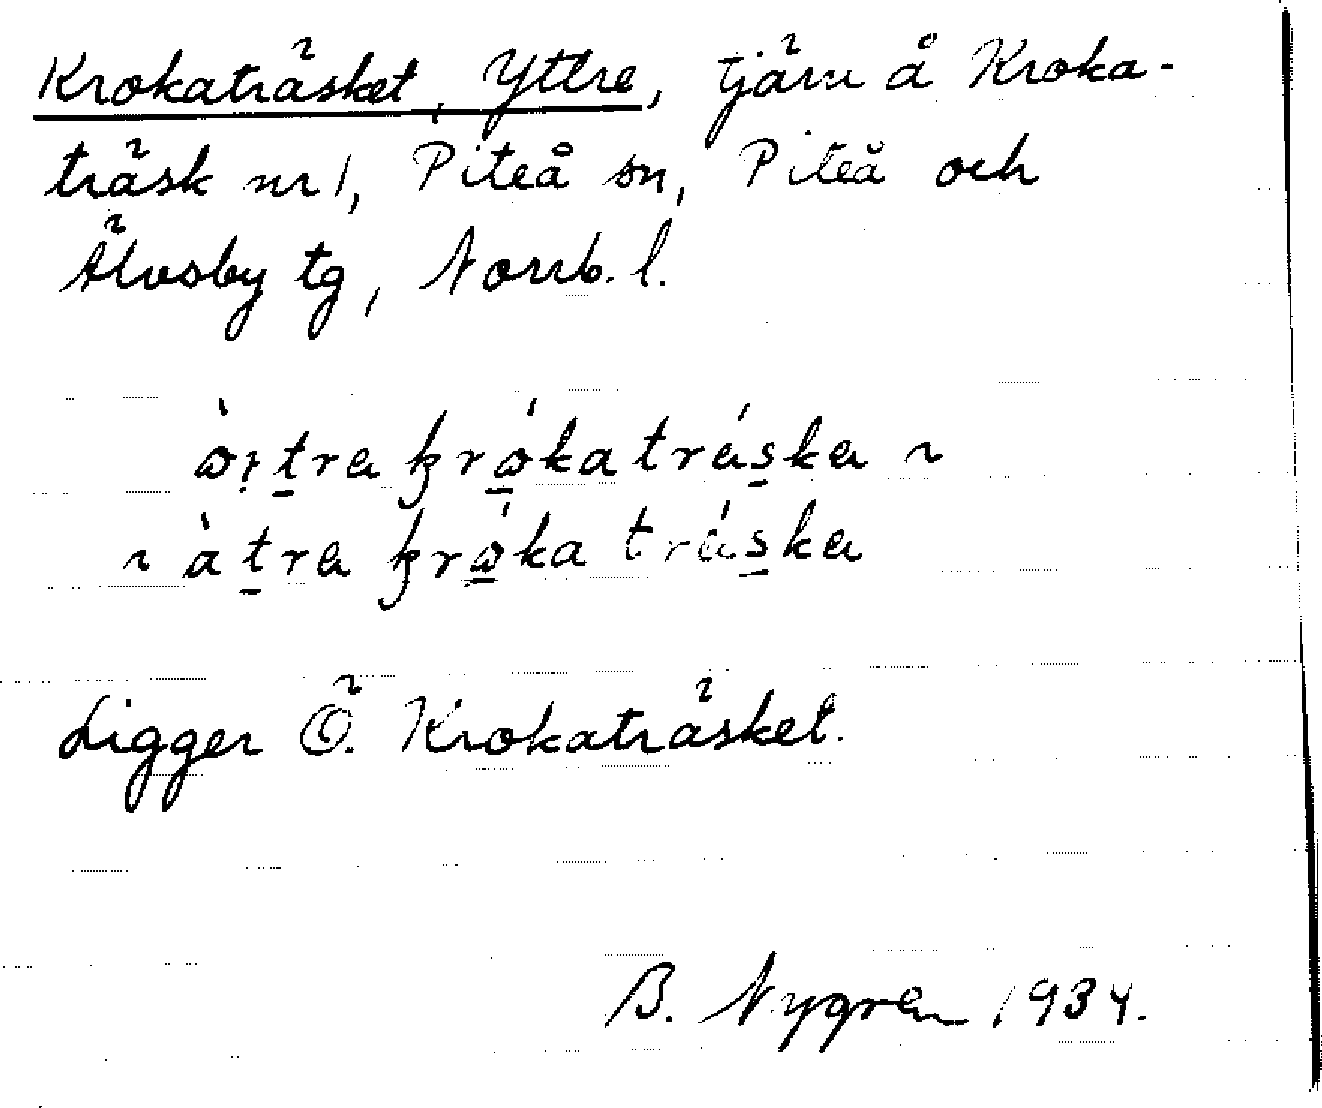 Krokaträsket, Yttre, tjärn å Kroka-
träsk nr 1, Piteå sn, Piteå och
Älvsby tg, Norrb. l.
ò̀ı̣t̠ra kró̠katrás̠ka ~
~ àt̠ra kró̠katrás̠ka
Ligger Ö. Krokaträsket.
B. Nygren 1934.